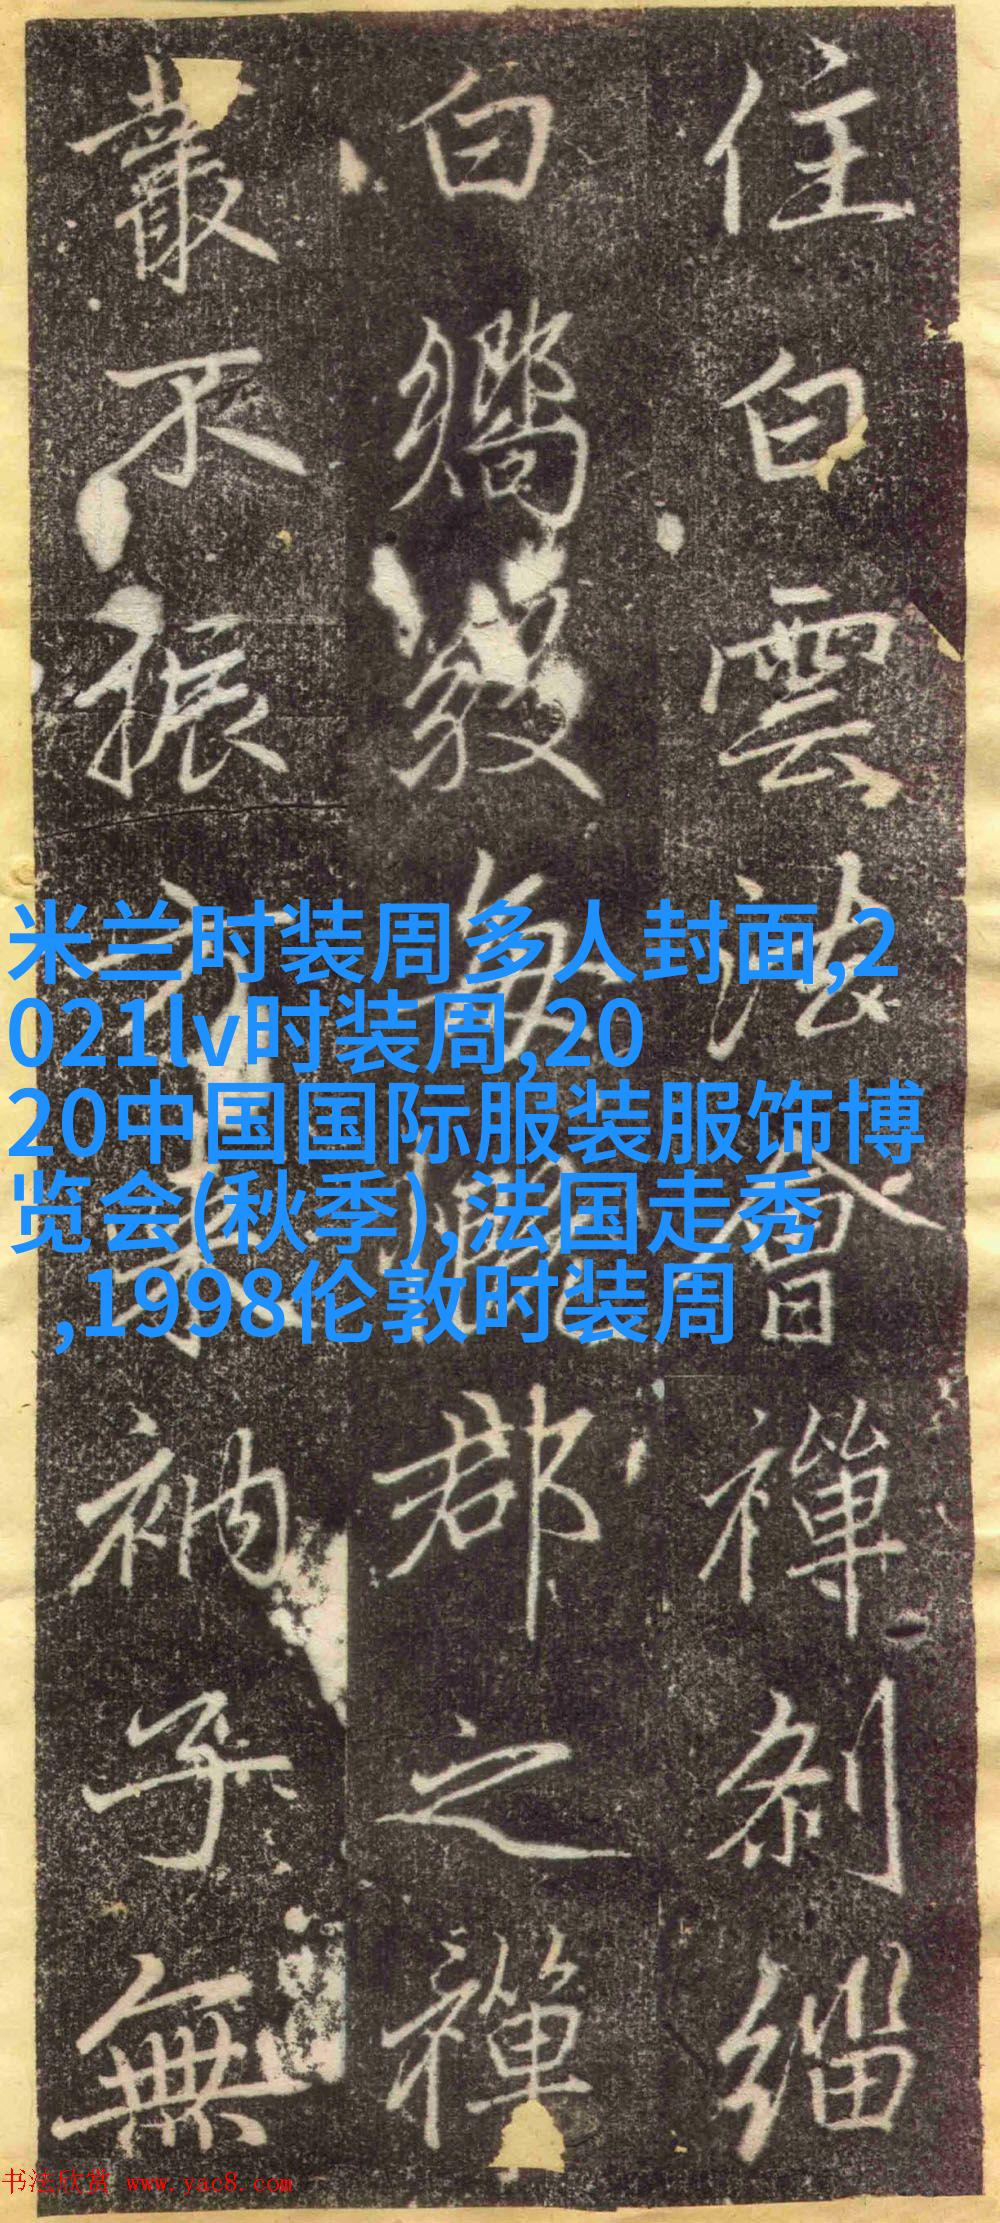 住白雲法會禪刹緇
白嚮每郡之禪
叢不振方來衲子無
米兰时装周多人封面,2
021lv时装周,20
20中国国际服装服饰博
览会(秋季),法国走秀
,1998伦敦时装周
书法欣赏 www.yac8.com